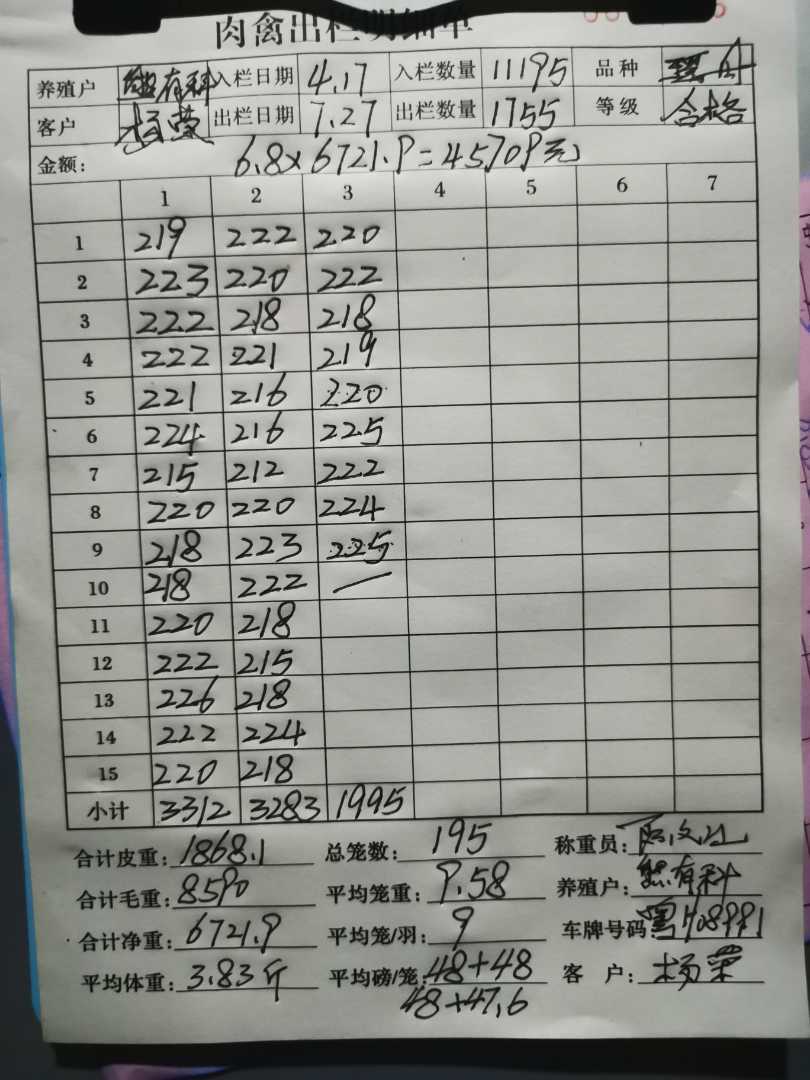 肉禽出栏明细单
养殖户 熊有科 入栏日期 4.17 入栏数量 11195 品种
客户 杨荣 出栏日期 7.27 出栏数量 1755 等级 合格
金额: 6.8×6721.9=45709元
1 2 3 4 5 6 7
1 219 222 220
2 223 220 222
3 222 218 218
4 222 221 219
5 221 216 220
6 224 216 225
7 215 212 222
8 220 220 224
9 218 223 225
10 218 222 —
11 220 218
12 222 215
13 226 218
14 222 224
15 220 218
小计 3312 3283 1995
合计皮重: 1868.1 总笼数: 195 称重员:
合计毛重: 8590 平均笼重: 9.58 养殖户: 熊有科
合计净重: 6721.9 平均笼/羽: 9 车牌号码:
平均体重: 3.83斤 平均磅/笼: 48+48 客 户: 杨荣
48+47.6